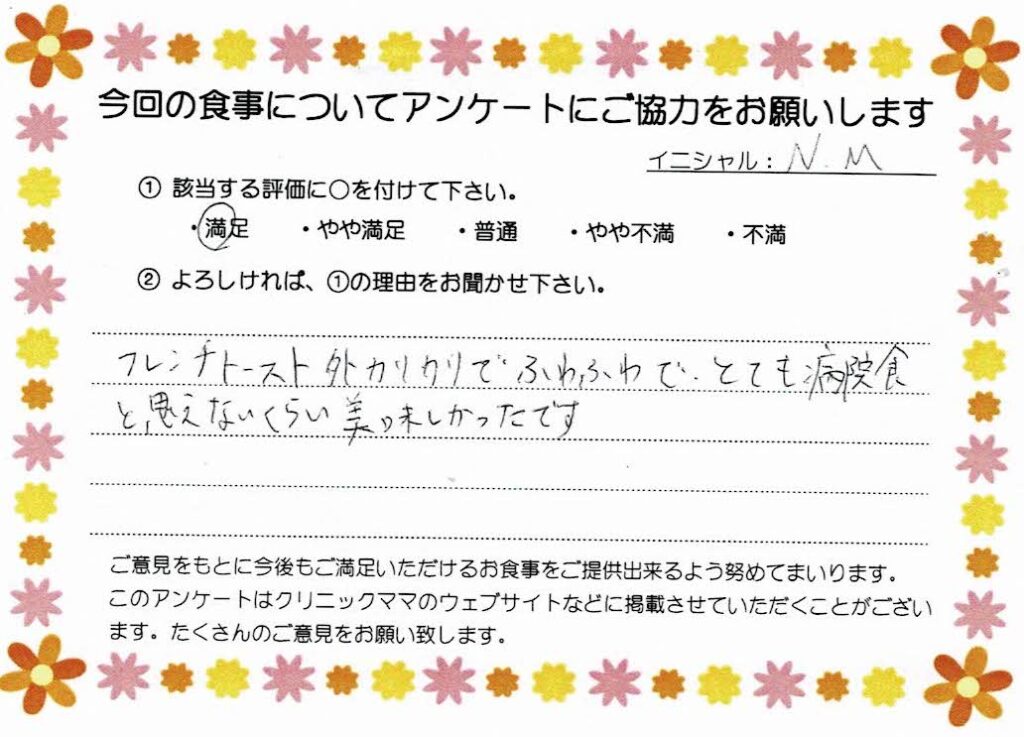 今回の食事についてアンケートにご協力をお願いします
イニシャル：N.M
① 該当する評価に○を付けて下さい。
・満足 ・やや満足 ・普通 ・やや不満 ・不満
② よろしければ、①の理由をお聞かせ下さい。
フレンチトースト外カリカリでふわふわで、とても病院食
と思えないくらい美味しかったです
ご意見をもとに今後もご満足いただけるお食事をご提供出来るよう努めてまいります。
このアンケートはクリニックママのウェブサイトなどに掲載させていただくことがござい
ます。たくさんのご意見をお願い致します。